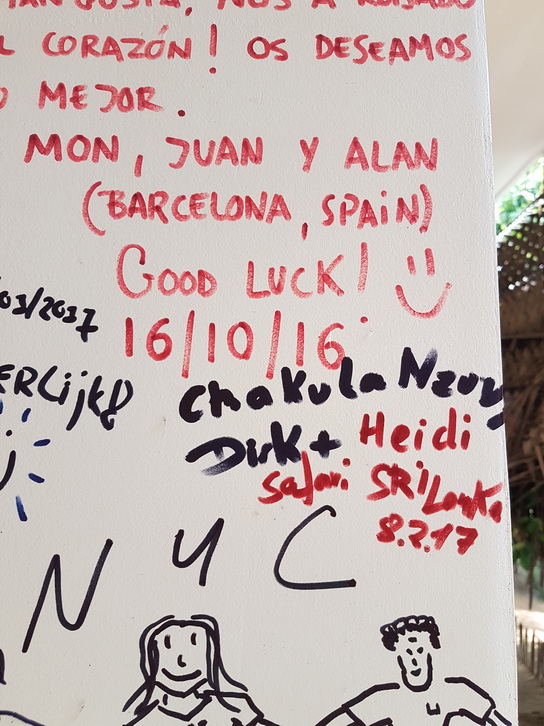 NOS A ROBADO
L CORAZÓN! OS DESEAMOS
O MEJOR.
MON, JUAN Y ALAN
(BARCELONA, SPAIN)
GOOD LUCK!
16/10/16
/03/2037
ERLijk
Chakula Nzuri
Dirk + Heidi
Safari SRi Lanka
8.2.17
NYC